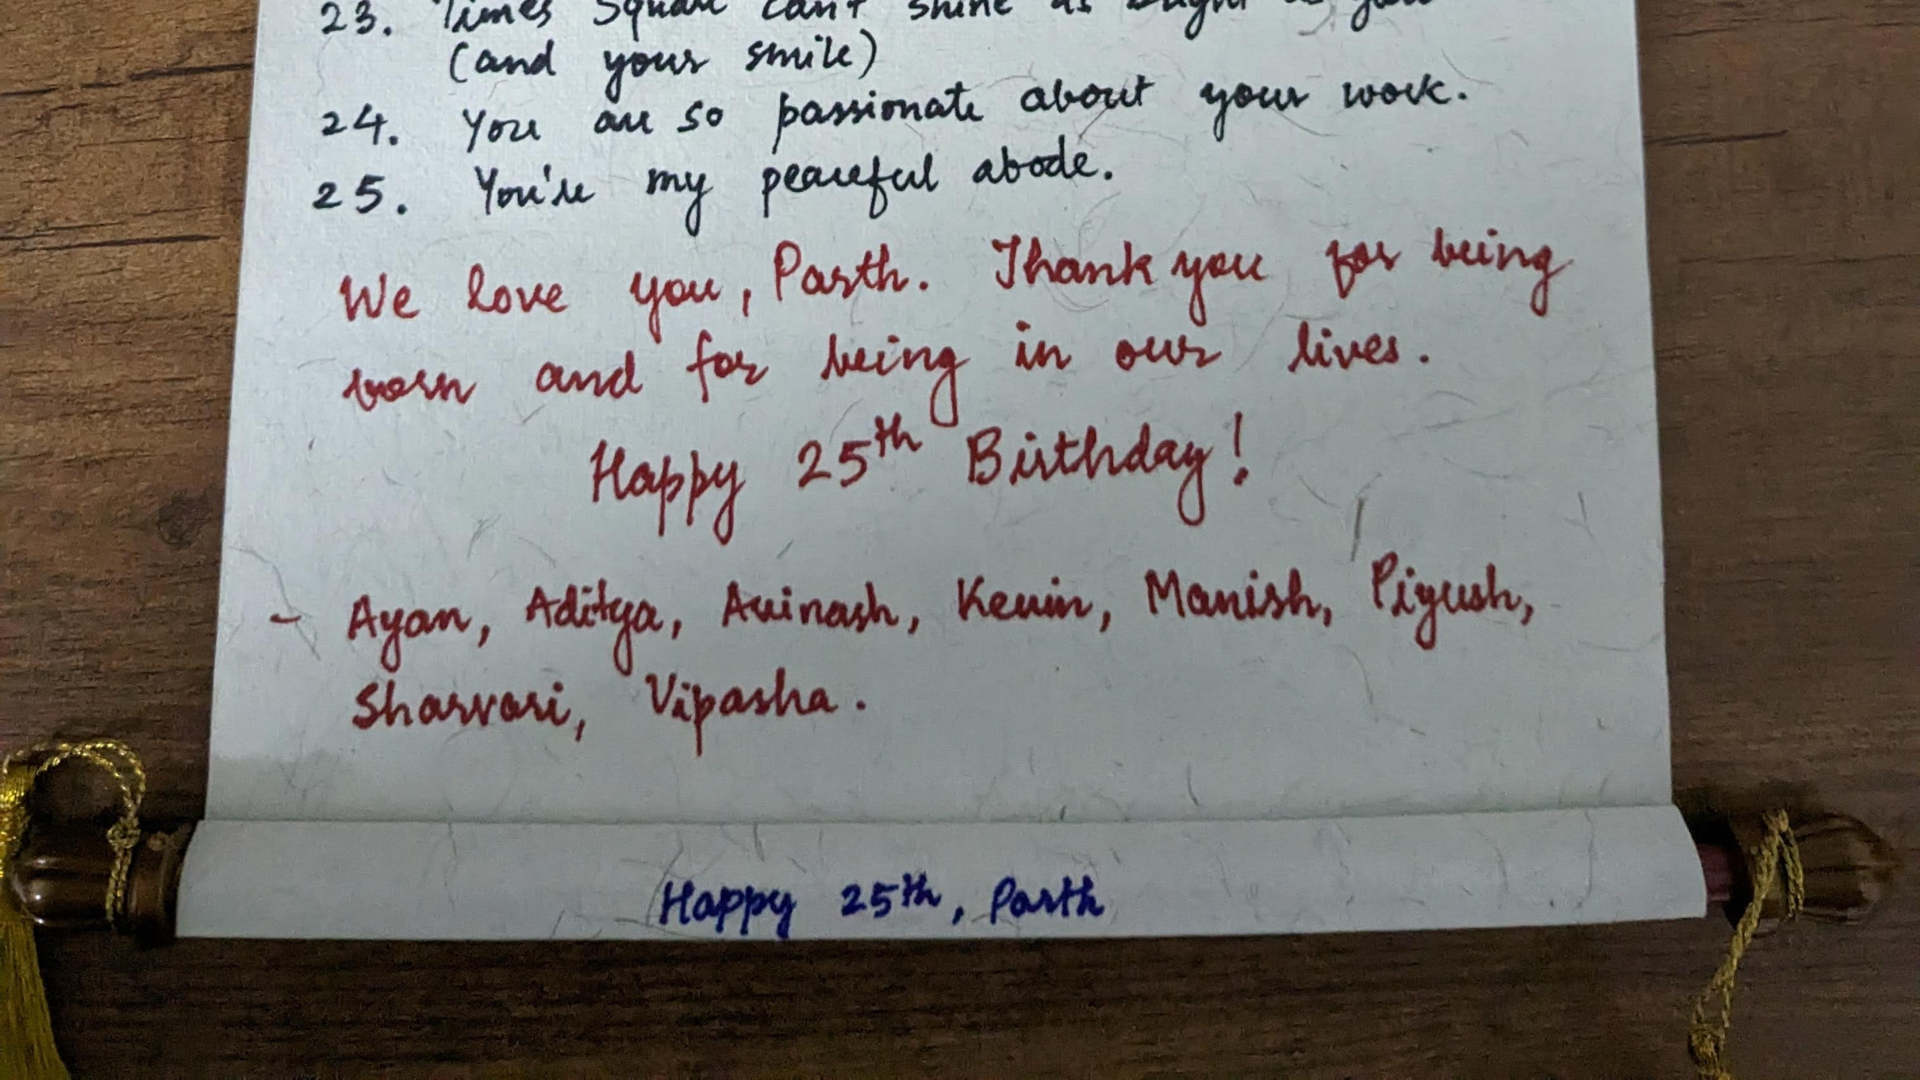 23. Times Square can't shine as bright as you
(and your smile)
24. You are so passionate about your work.
25. You're my peaceful abode.
We love you, Parth. Thank you for being
born and for being in our lives.
Happy 25th Birthday!
- Ayan, Aditya, Avinash, Kevin, Manish, Piyush,
Sharvari, Vipasha.
Happy 25th, Parth